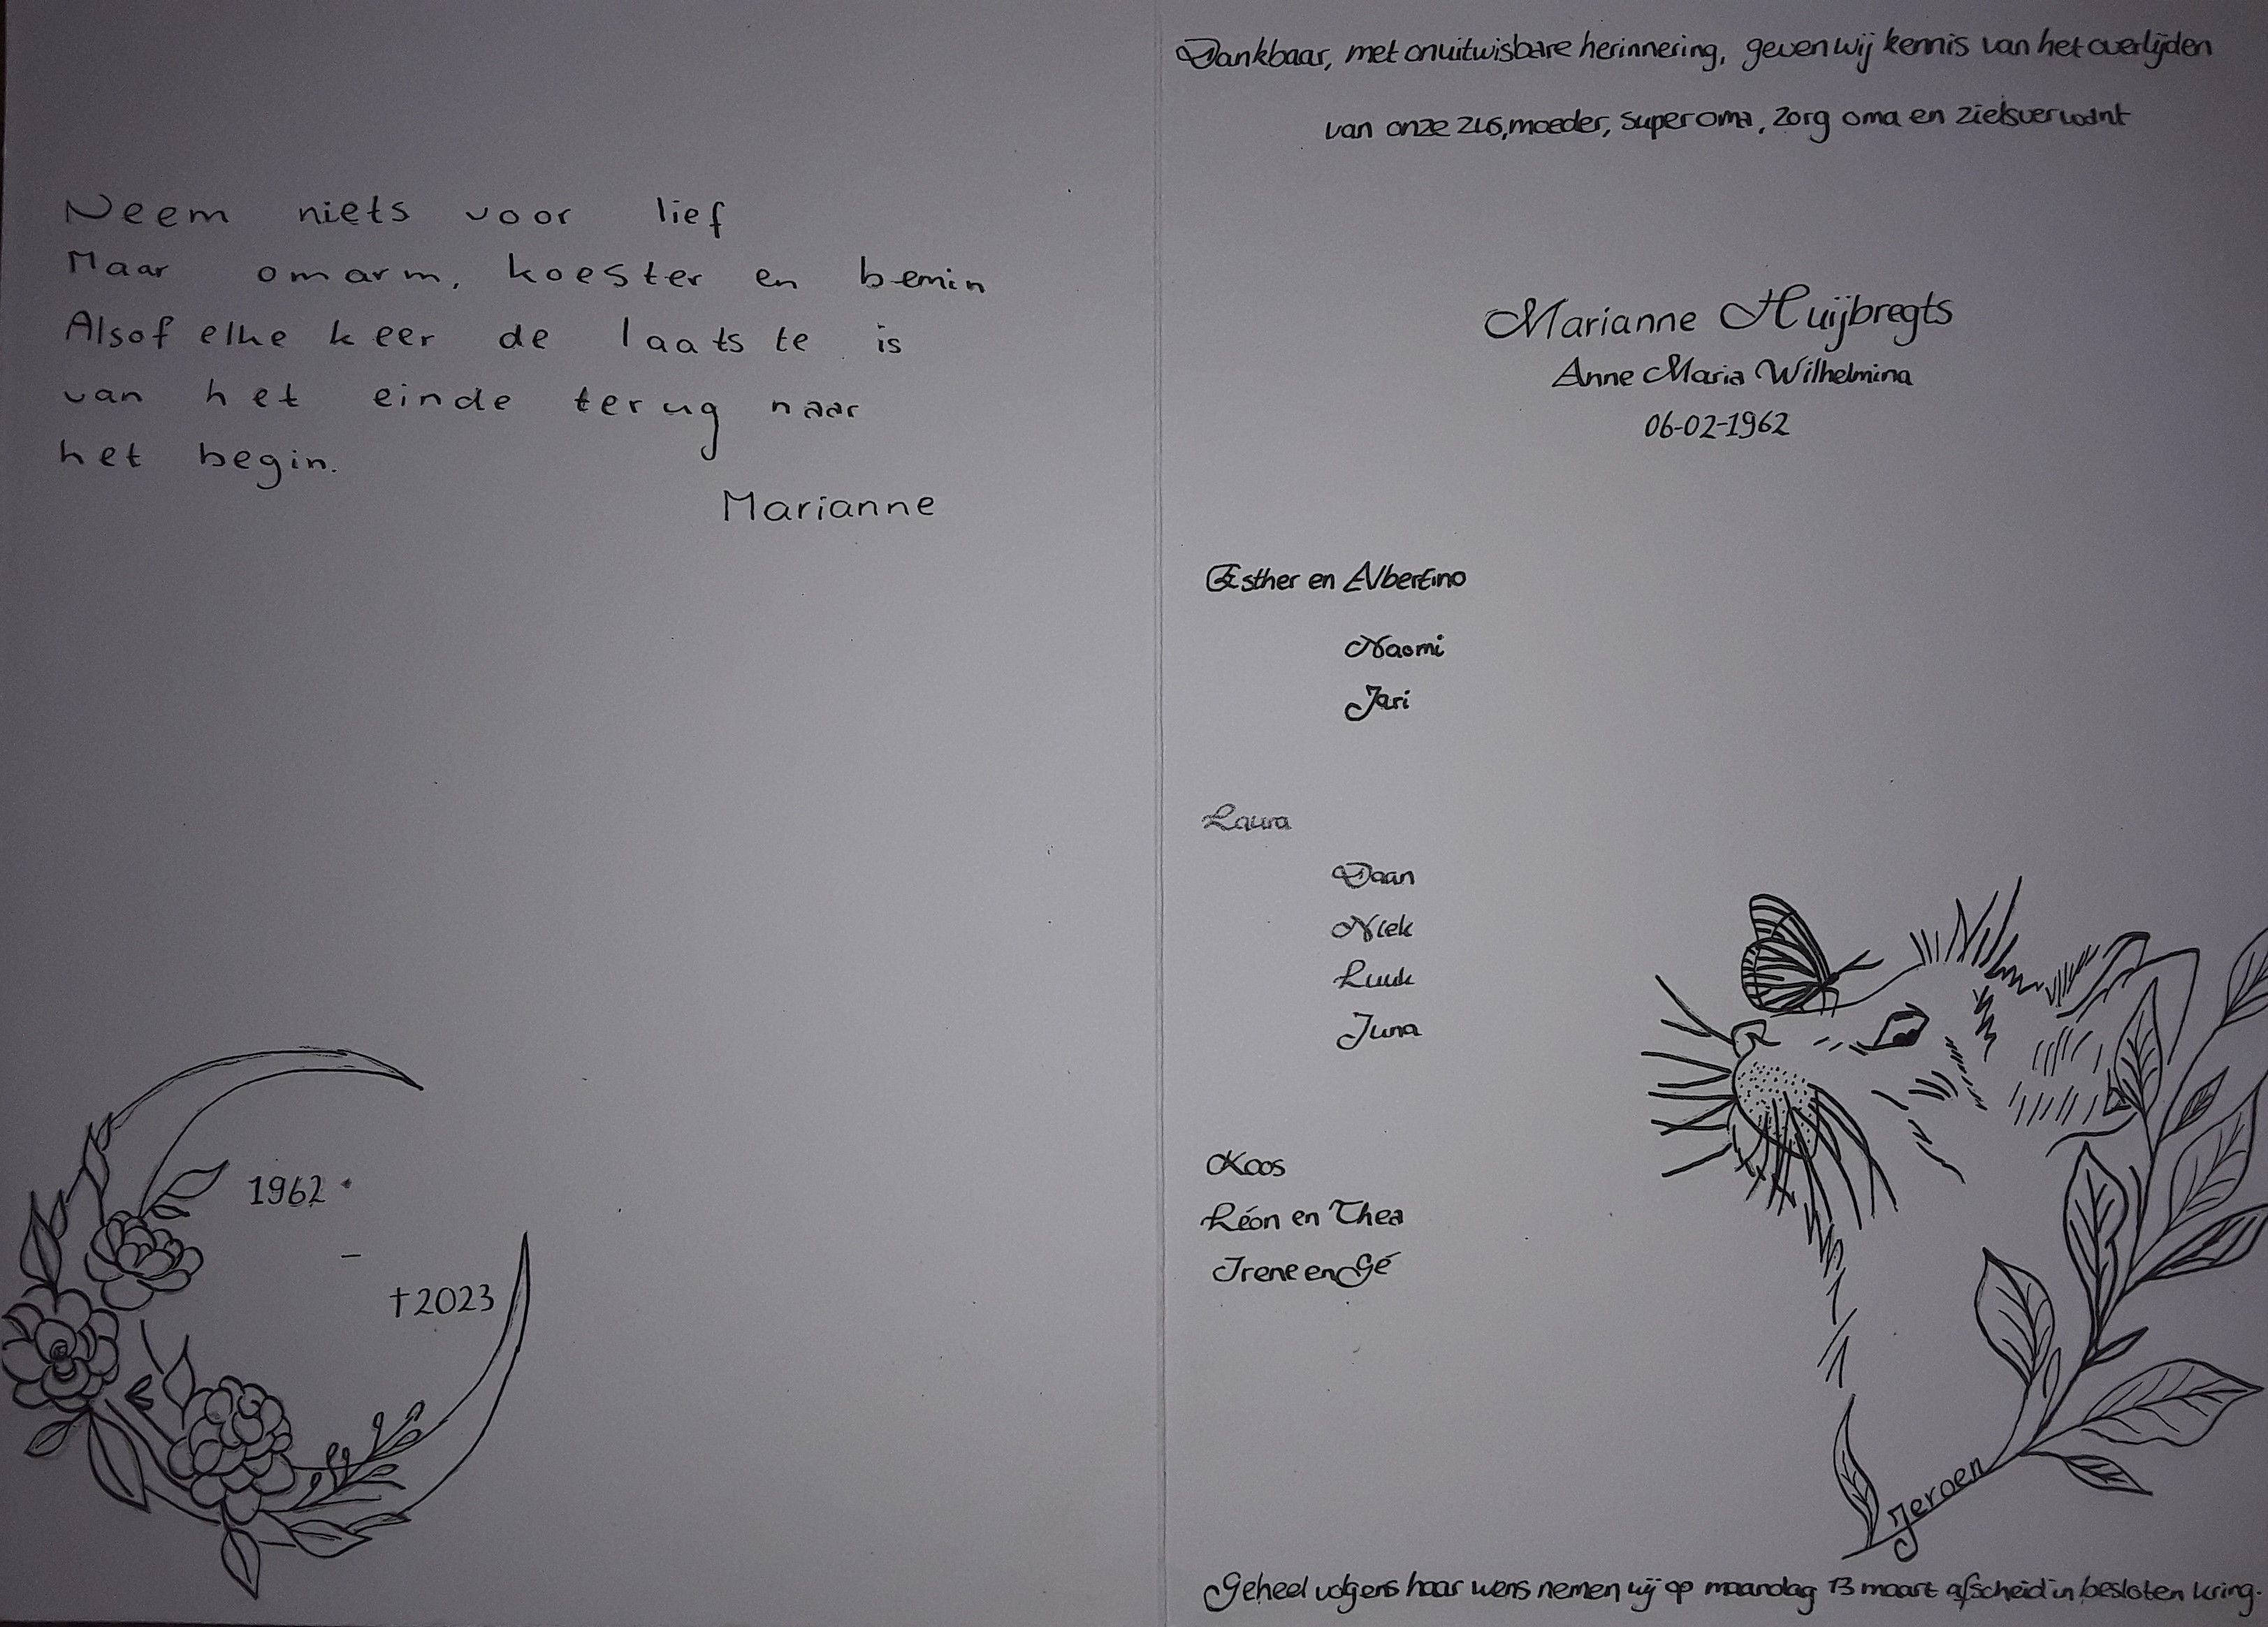 Neem niets voor lief
Maar omarm, koester en bemin
Alsof elke keer de laatste is
van het einde terug naar
het begin.
Marianne
1962 *
–
†2023
Dankbaar, met onuitwisbare herinnering, geven wij kennis van het overlijden
van onze zus, moeder, super oma, zorg oma en zielsverwant
Marianne Huijbregts
Anne Maria Wilhelmina
06-02-1962
Esther en Albertino
Naomi
Jari
Laura
Daan
Niek
Luuk
Juna
Koos
Léon en Thea
Irene en Gé
Jeroen
Geheel volgens haar wens nemen wij op maandag 13 maart afscheid in besloten kring.